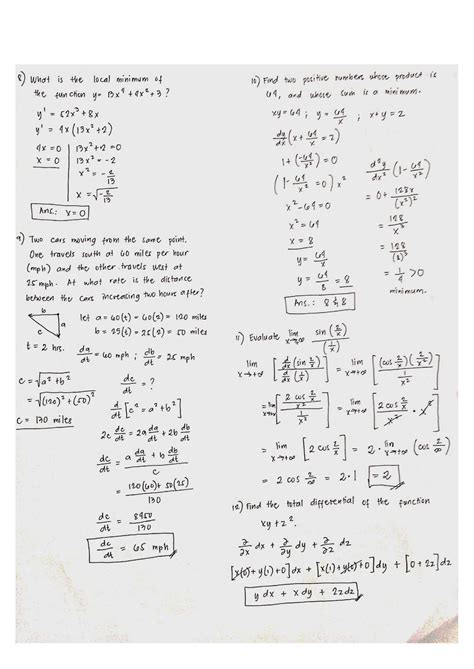 8) What is the local minimum of
the function y = 13x⁴ + 4x² + 3 ?
y' = 52x³ + 8x
y' = 4x (13x² + 2)
4x = 0 | 13x² + 2 = 0
x = 0 | 13x² = -2
x² = -2/13
x = √-2/13
Ans.: x = 0
9) Two cars moving from the same point.
One travels south at 60 miles per hour
(mph) and the other travels west at
25 mph. At what rate is the distance
between the cars increasing two hours after?
b
c
a
let a = 60(t) = 60(2) = 120 miles
b = 25(t) = 25(2) = 50 miles
t = 2 hrs. da/dt = 60 mph ; db/dt = 25 mph
c = √a² + b²
= √(120)² + (50)²
c = 130 miles
dc/dt = ?
d/dt [c² = a² + b²]
2c dc/dt = 2a da/dt + 2b db/dt
dc/dt = a da/dt + b db/dt / c
= 120(60) + 50(25) / 130
dc/dt = 8450/130
dc/dt = 65 mph
10) Find two positive numbers whose product is
64, and whose sum is a minimum.
xy = 64 ; y = 64/x ; x + y = 2
dy/dx (x + 64/x) = 0
1 + (-64/x²) = 0
(1 - 64/x² = 0) x²
x² - 64 = 0
x² = 64
x = 8
y = 64/x
y = 64/8 = 8
Ans.: 8 & 8
d²y/dx² (1 - 64/x²)
= 0 + 128x/(x²)²
= 128/x³
= 128/(8)³
= 1/4 > 0
minimum.
11) Evaluate lim x→+∞ sin (2/x) / (1/x)
lim x→+∞ [d/dx (sin 2/x) / d/dx (1/x)] = lim x→+∞ [(cos 2/x)(2/x²) / 1/x²]
= lim x→+∞ [2 cos 2/x / x² / 1/x²] = lim x→+∞ [2 cos 2/x / x² · x²]
= lim x→+∞ [2 cos 2/x] = 2 · lim x→+∞ (cos 2/∞)
= 2 cos 2/∞ = 2 · 1 = 2
12) Find the total differential of the function
xy + z².
∂/∂x dx + ∂/∂y dy + ∂/∂z dz
[x(0) + y(1) + 0] dx + [x(1) + y(0) + 0] dy + [0 + 2z] dz
y dx + x dy + 2z dz